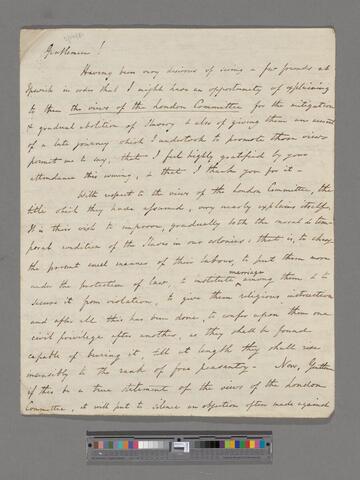 Gentlemen!
Having been very desirous of seeing a few friends at
Ipswich in order that I might have an opportunity of explaining
to them the views of the London Committee for the mitigation
& gradual abolition of Slavery & also of giving them an account
of a late journey which I undertook to promote those views
permit me to say, that I feel highly gratified by your
attendance this evening, & that I thank you for it -
With respect to the views of the London Committee, the
title which they have assumed, very nearly explains itself.
It is their wish to improve, gradually both the moral & tem-
poral condition of the Slaves in our colonies; that is, to change
the present cruel manner of their labour, to put them more
marriage
under the protection of law, to institute among them & to
secure it from violation, to give them religious instruction
and after all this has been done, to confer upon them one
civil privilege after another, as they shall be found
capable of bearing it, till at length they shall rise
insensibly to the rank of free peasantry - Now, Gentlen
if this be a true statement of the views of the London
Committee, it will put to silence an objection often made against